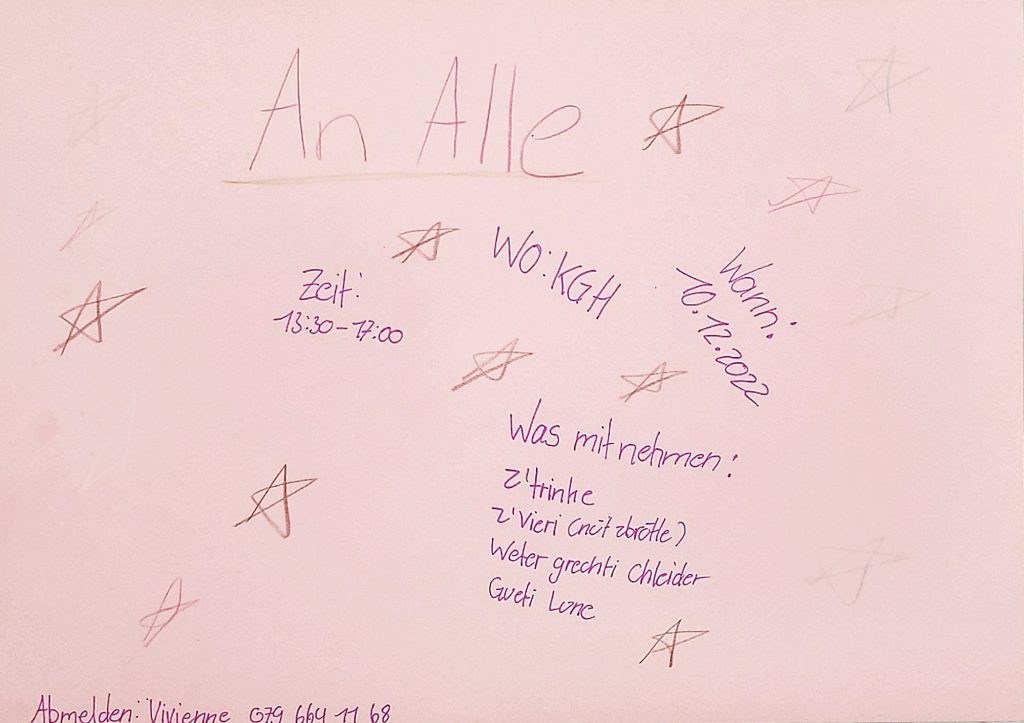 An Alle
Zeit:
13:30-17:00
Wo: KGH
Wann:
10.12.2022
Was mitnehmen:
Z'trinke
Z'Vieri (nüt zbrötle)
Weter grechti Chleider
Gueti Lune
Abmelden: Vivienne 079 664 11 68